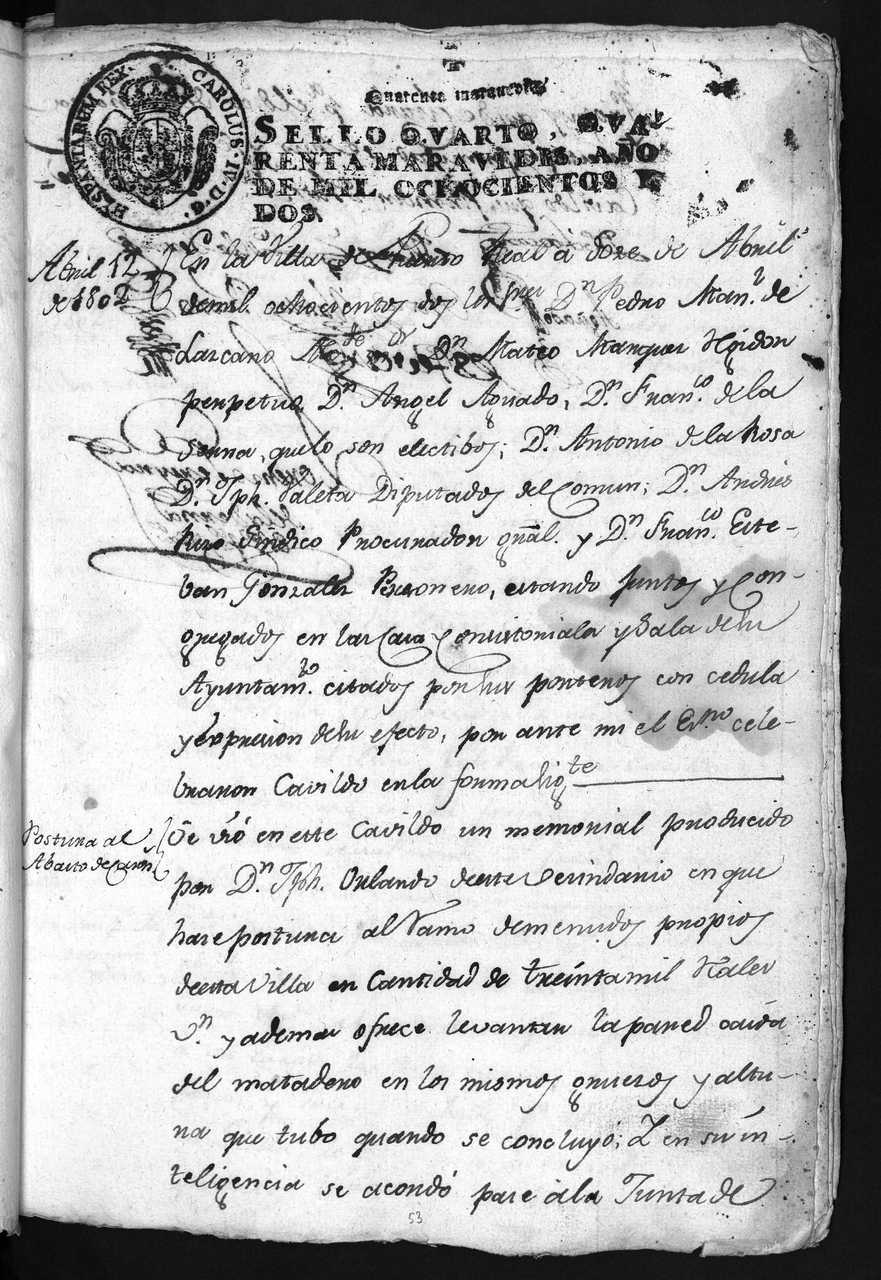 HISPANIARUM REX. CAROLUS·IV·D·G·
Quarenta maravedis
SELLO QVARTO, QVA
RENTA MARAVEDIS, AÑO
DE MIL OCHOCIENTOS Y
DOS.
Abril 12
de 1802
En la Villa de Puerto Real a doze de Abril
de mil ochocientos dos los Sres Dn Pedro Manl. de
Lazcano Dn Mateo Marquez Rexidor
perpetuo Dn. Angel Aguado, Dn. Franco. de la
Serna, que lo son electibos; Dn. Antonio de la Rosa
Dn. Jph. Valeta Diputados del Comun; Dn Andres
Rizo Sindico Procurador gral. y Dn. Franco. Este-
ban Gonzalez Personero, estando juntos y con-
gregados en las Casas Consistoriales y Sala de su
Ayuntamto. citados por sus porteros con cedula
y expresion de su efecto, por ante mi el Esno cele-
braron Cavildo en la forma sigte
Postura al
Abasto de Carne
Se vió en este Cavildo un memorial producido
por Dn. Jph. Orlando de este Vecindario en que
hase postura al Ramo de menudos propios
de esta Villa en Cantidad de treinta mil Rales
Vn y ademas ofrece levantar la pared caida
del matadero en los mismos gruesos y altu-
ra que tubo quando se concluyó; Y en su in-
teligencia se acordó pase à la Junta de
53